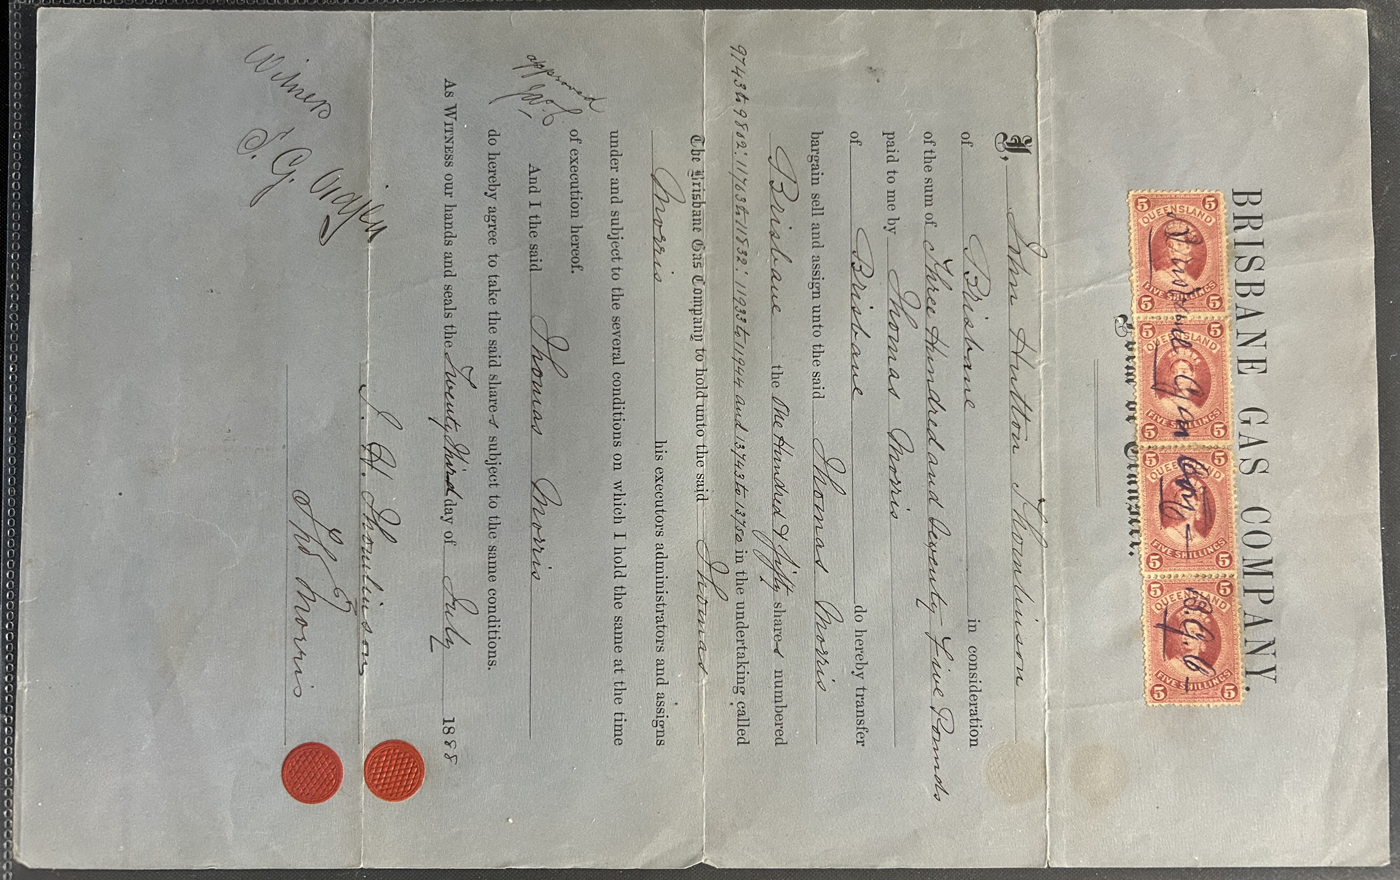 BRISBANE GAS COMPANY.
5 QUEENSLAND 5
5 FIVE SHILLINGS 5
5 QUEENSLAND 5
5 FIVE SHILLINGS 5
5 QUEENSLAND 5
5 FIVE SHILLINGS 5
5 QUEENSLAND 5
5 FIVE SHILLINGS 5
Brisbane Gas Coy
B. G. C
Form of Transfer.
I, John Hutton Thomlinson
of Brisbane in consideration
of the sum of Three Hundred and Seventy Five Pounds
paid to me by Thomas Morris
of Brisbane do hereby transfer
bargain sell and assign unto the said Thomas Morris
Brisbane the One Hundred & Fifty shares numbered
9743 to 9802: 11763 to 11832: 11933 to 11944 and 13743 to 13750 in the undertaking called
The Brisbane Gas Company to hold unto the said Thomas
Morris his executors administrators and assigns
under and subject to the several conditions on which I hold the same at the time
of execution hereof.
approved
And I the said Thomas Morris
do hereby agree to take the said shares subject to the same conditions.
As Witness our hands and seals the Twenty Third day of July 1888
J. H. Thomlinson
Thos Morris
Witness